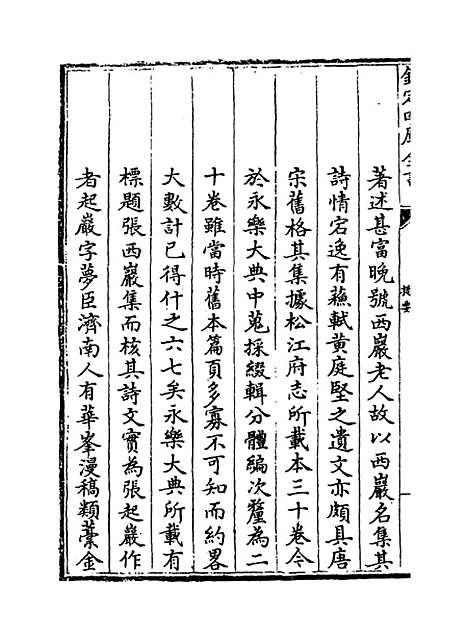 欽定四庫全書
提要
著述甚富晚號西巖老人故以西巖名集其
詩情宕逸有蘇軾黃庭堅之遺文亦頗具唐
宋舊格其集據松江府志所載本三十卷今
於永樂大典中蒐採綴輯分體編次釐為二
十卷雖當時舊本篇頁多寡不可知而約畧
大數計已得什之六七矣永樂大典所載有
標題張西巖集而核其詩文實為張起巖作
者起巖字夢臣濟南人有華峯漫稿類藁金